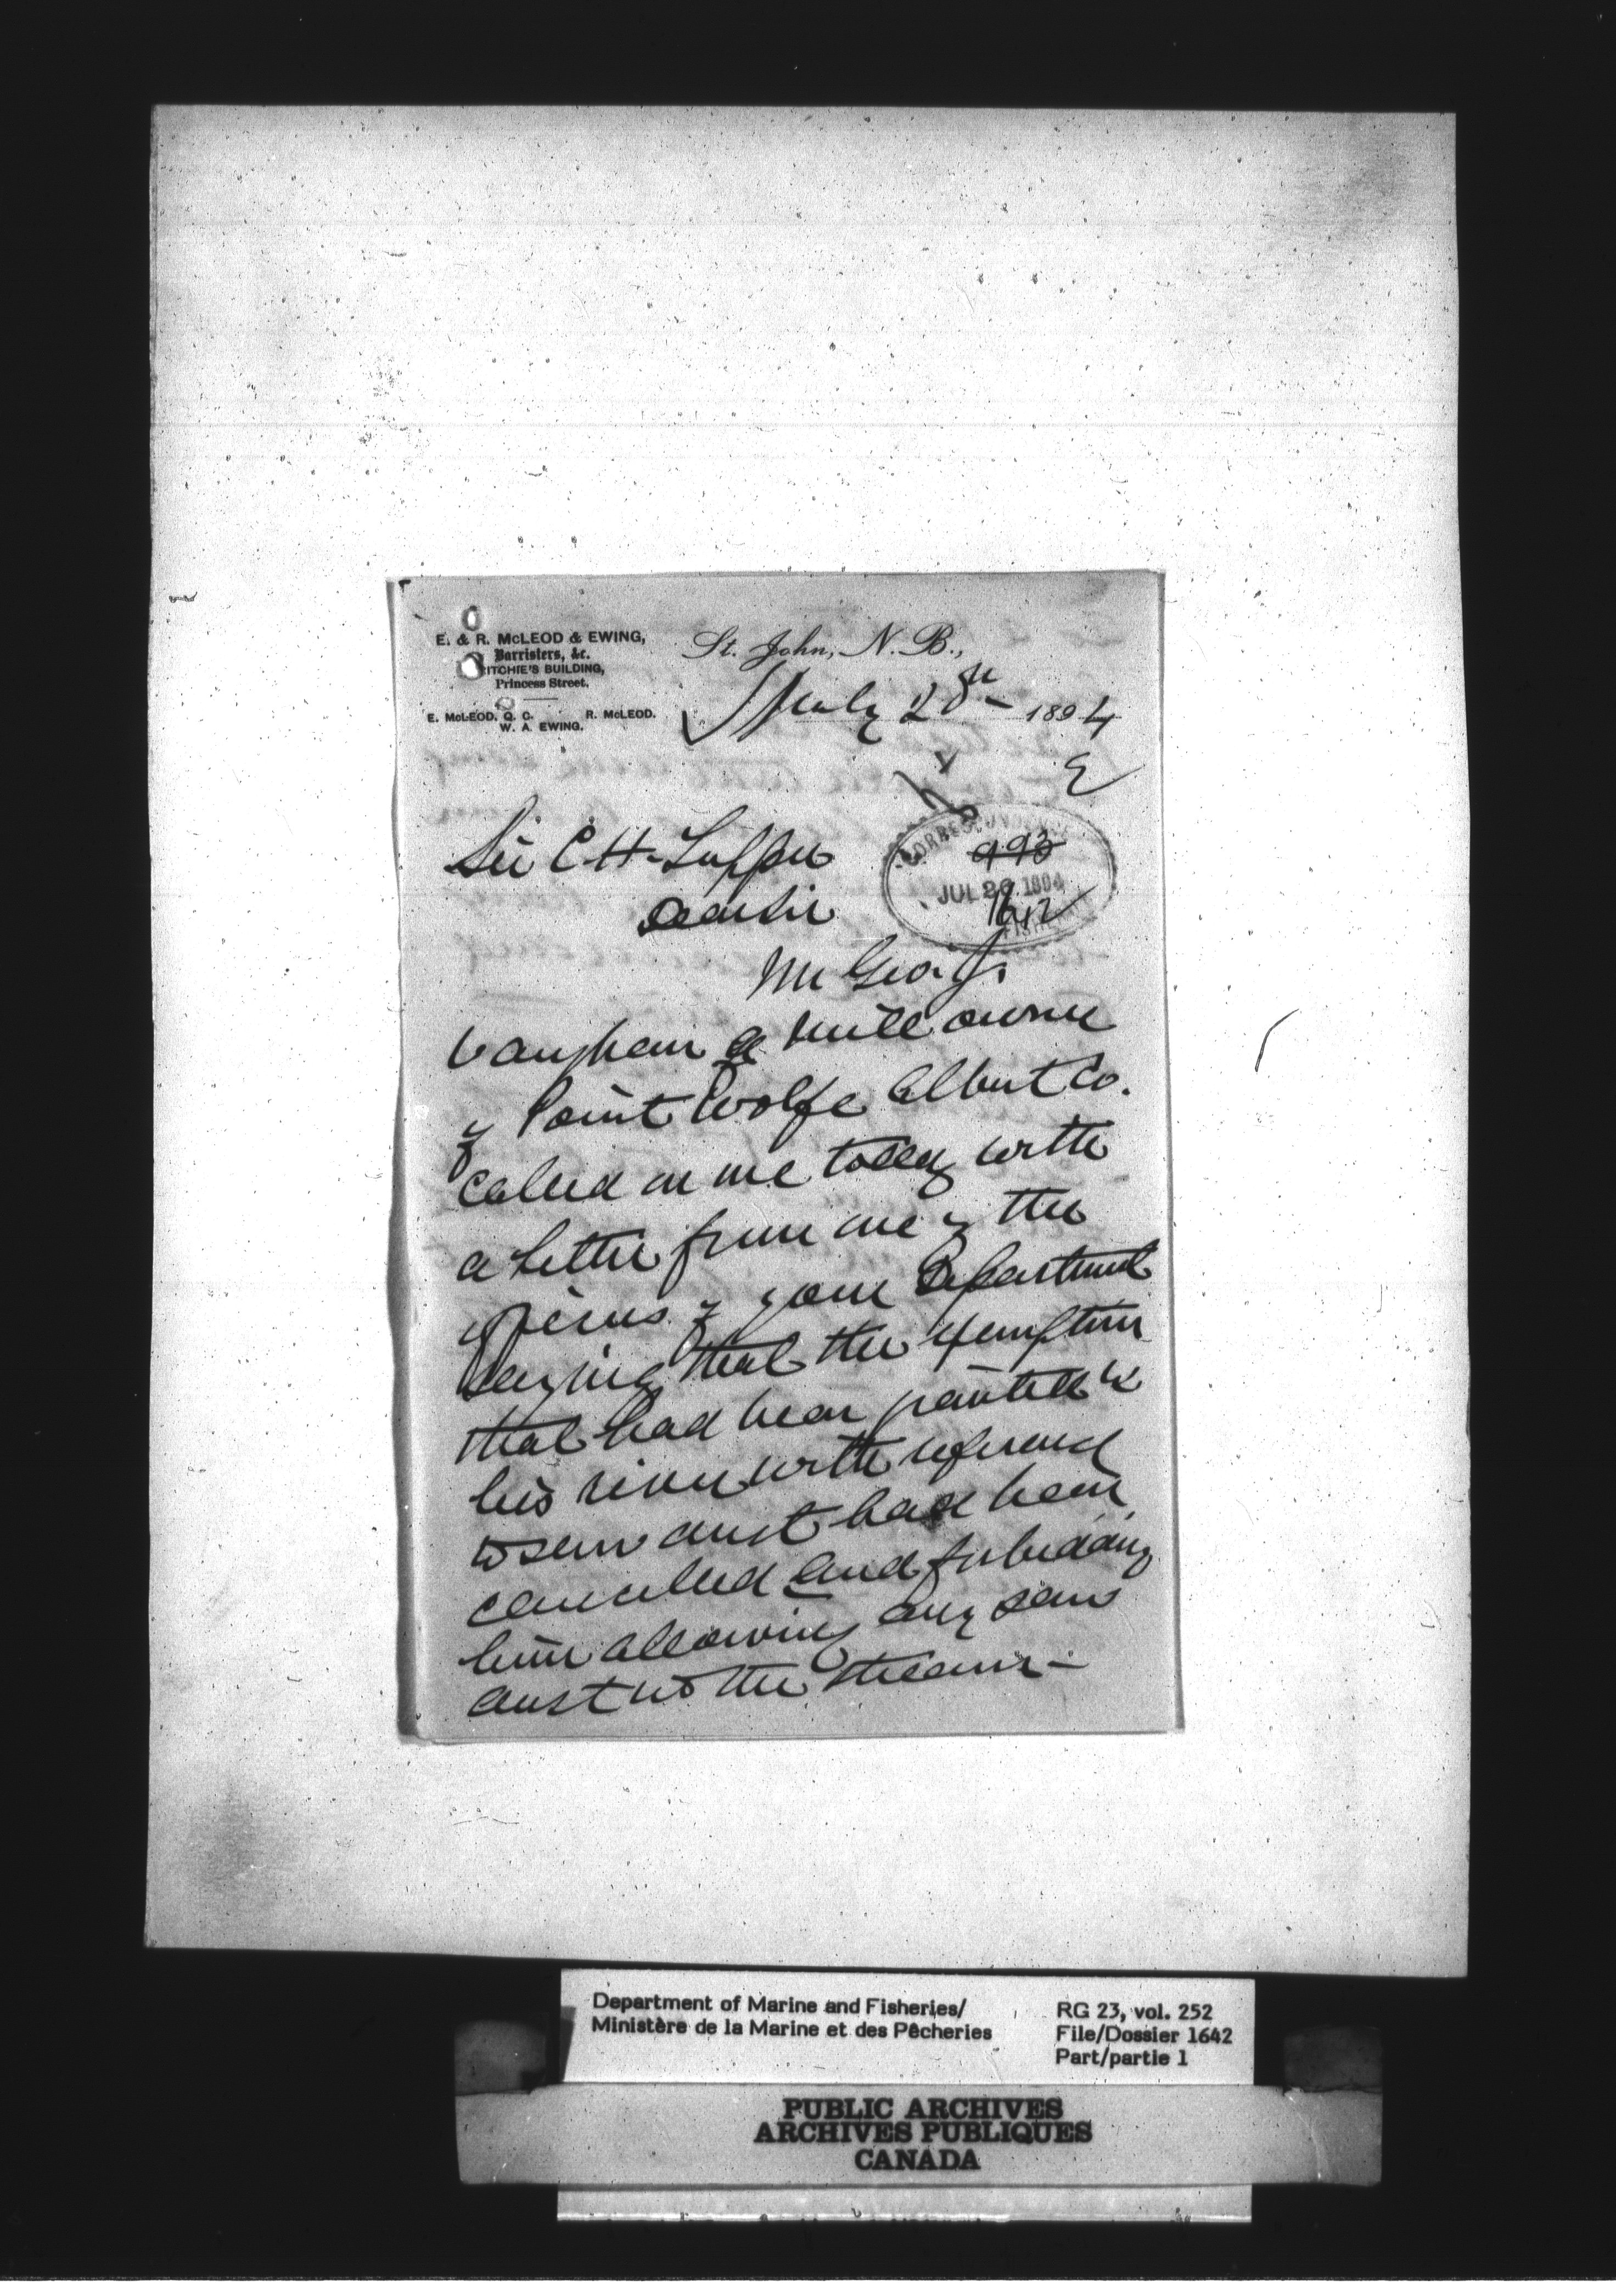 E. & R. McLEOD & EWING,
Barristers, &c.
RITCHIE'S BUILDING,
Princess Street.
E. McLEOD, Q. C. R. McLEOD.
W. A. EWING.
St. John, N. B.,
July 28th 1894
E
CORRESPONDENCE
993
JUL 30 1894
1642
FISHERIES
Sir C H Tupper
Dear Sir
Mr Geo. J.
Vaughan a Mill owner
of Point Wolfe Albert Co.
called on me today with
a letter from one of the
officers of your Department
saying that the exemption
that had been granted to
his river with reference
to saw dust had been
cancelled and forbidding
him allowing any saw
dust into the stream –
Department of Marine and Fisheries/
Ministère de la Marine et des Pêcheries
RG 23, vol. 252
File/Dossier 1642
Part/partie 1
PUBLIC ARCHIVES
ARCHIVES PUBLIQUES
CANADA